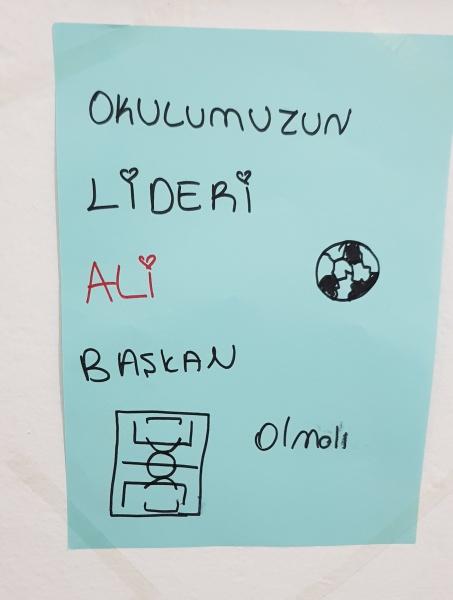 OKULUMUZUN
LİDERİ
ALİ
BAŞKAN
Olmalı